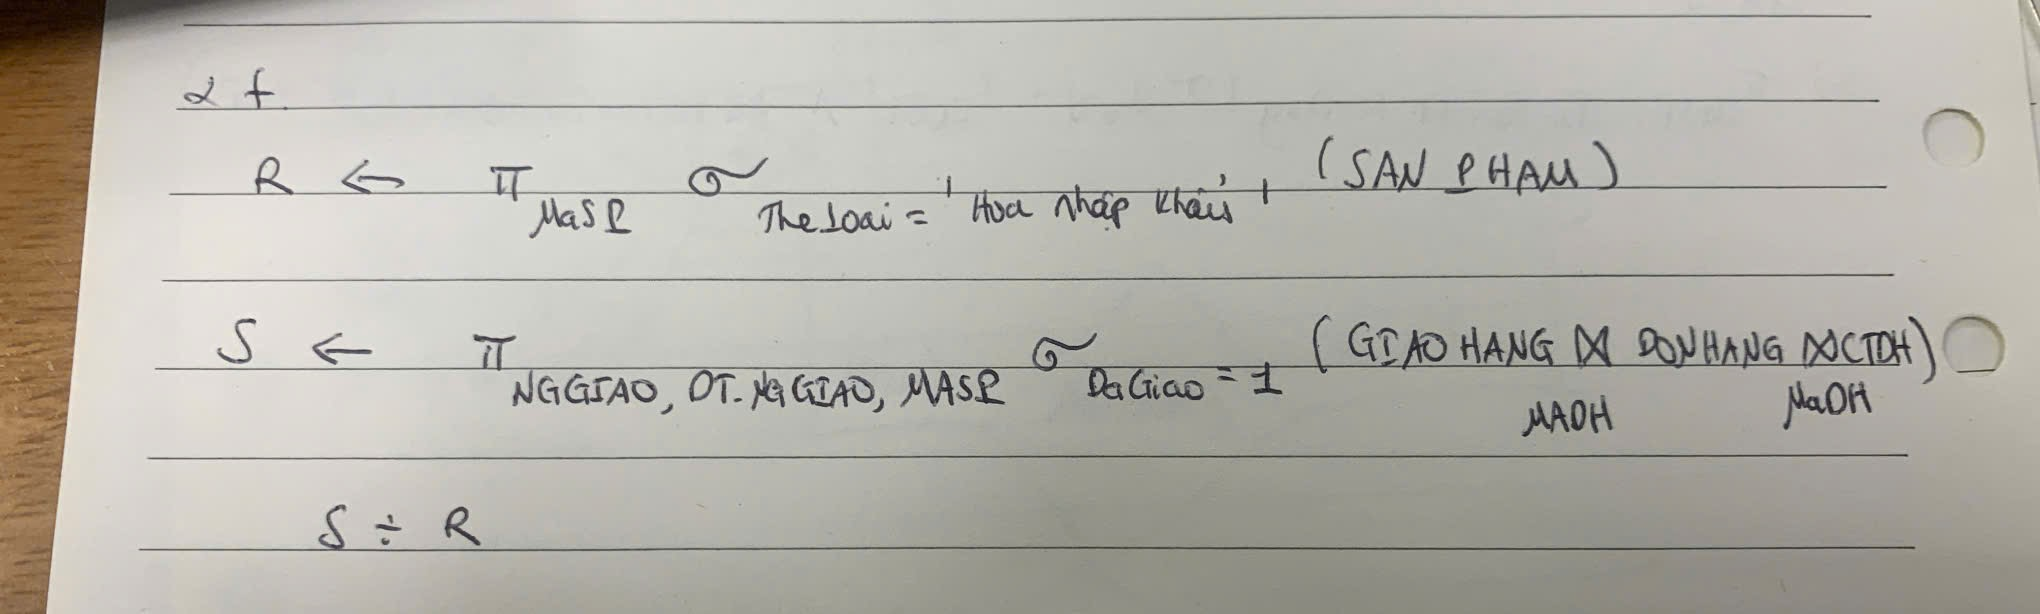 2 f.
R ← π MaSP σ TheLoai = 'Hoa nhập khẩu' (SAN PHAM)
S ← π NGGIAO, DT_NGGIAO, MASP σ DaGiao = 1 (GIAO HANG ⋈ MADH DONHANG ⋈ MaDH CTDH)
S ÷ R